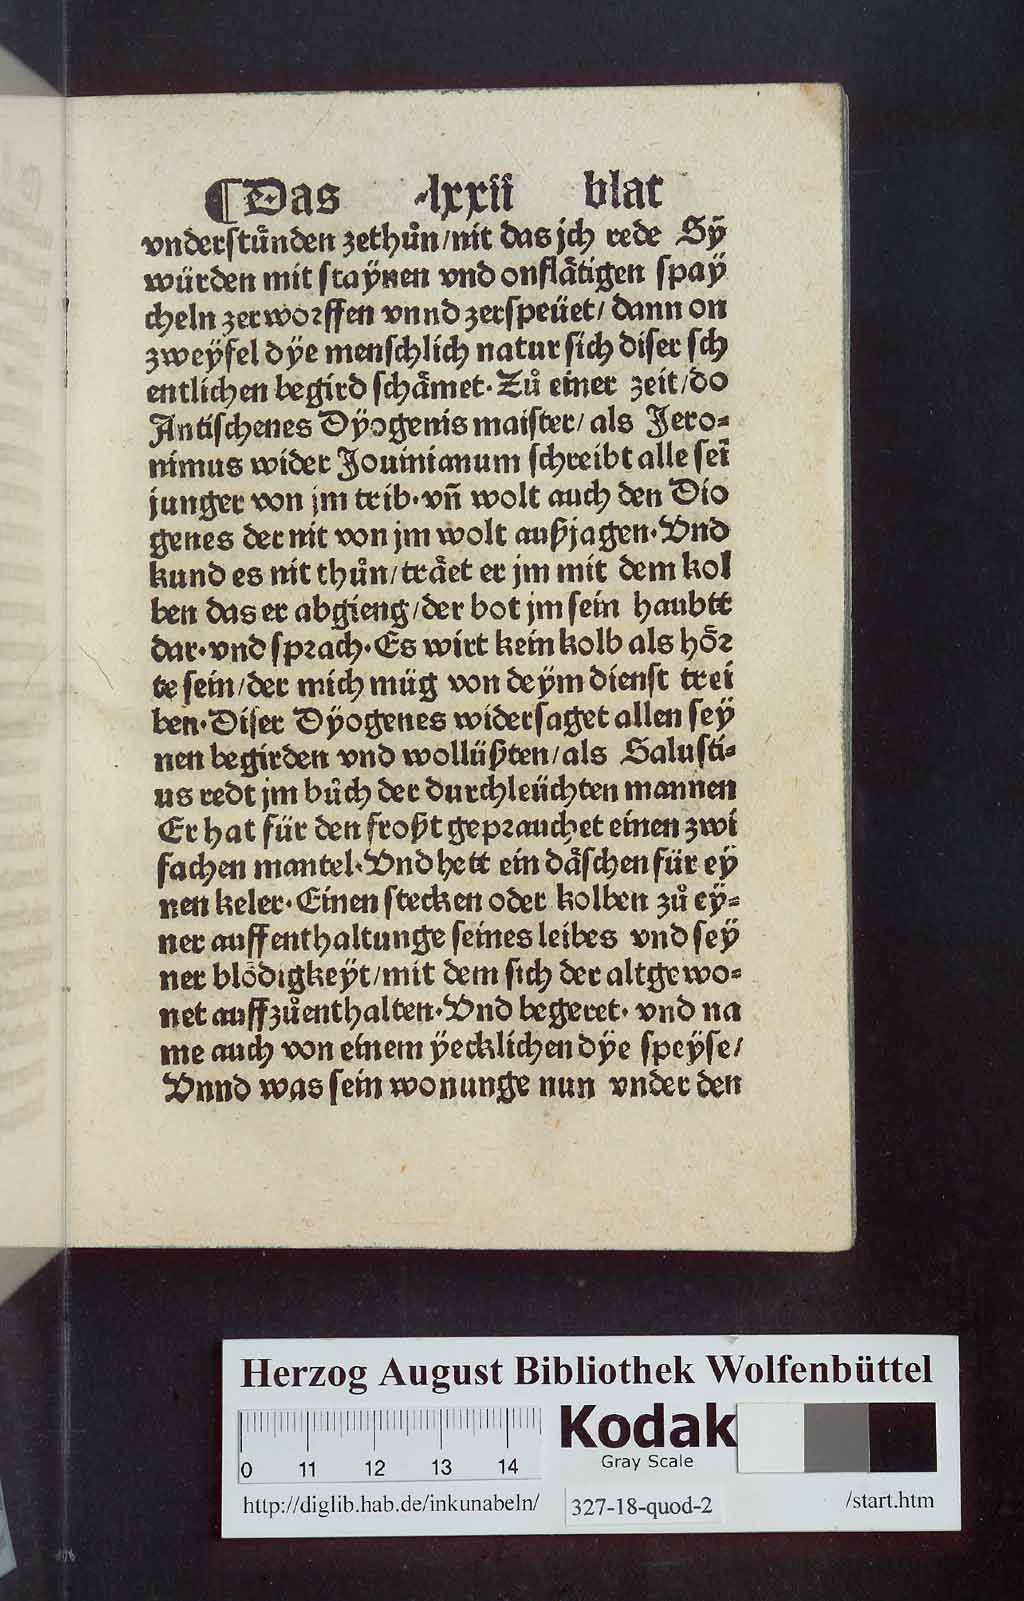 ¶Das ·lxxii blat
vnderstůnden zethůn/nit das jch rede Sÿ
würden mit staÿnen vnd onflåtigen spaÿ
cheln zerworffen vnnd zerspeüet/ dann on
zweÿfel dÿe menschlich natur sich diser sch
entlichen begird schåmet· Zů einer zeit/do
Antischenes Dÿogenis maister/ als Jero⸗
nimus wider Jouinianum schreibt alle seī
junger von jm trib· vñ wolt auch den Dio
genes der nit von jm wolt außjagen· Vnd
kund es nit thůn/trået er jm mit dem kol
ben das er abgieng/der bot jm sein haubtt
dar· vnd sprach· Es wirt kein kolb als hör
te sein/der mich müg von deÿm dienst trei
ben· Diser Dÿogenes widersaget allen seÿ
nen begirden vnd wollüßten/als Salusti⸗
us redt jm bůch der durchleüchten mannen
Er hat für den froßt geprauchet einen zwi
fachen mantel· Vnd hett ein dåschen für eÿ
nen keler· Einen stecken oder kolben zů eÿ⸗
ner auffenthaltunge seines leibes vnd seÿ
ner blödigkeÿt/mit dem sich der altgewo⸗
net auffzůenthalten· Vnd begeret· vnd na
me auch von einem ÿecklichen dÿe speÿse/
Vnnd was sein wonunge nun vnder den
Herzog August Bibliothek Wolfenbüttel
0 11 12 13 14
Kodak
Gray Scale
http://diglib.hab.de/inkunabeln/ 327-18-quod-2 /start.htm